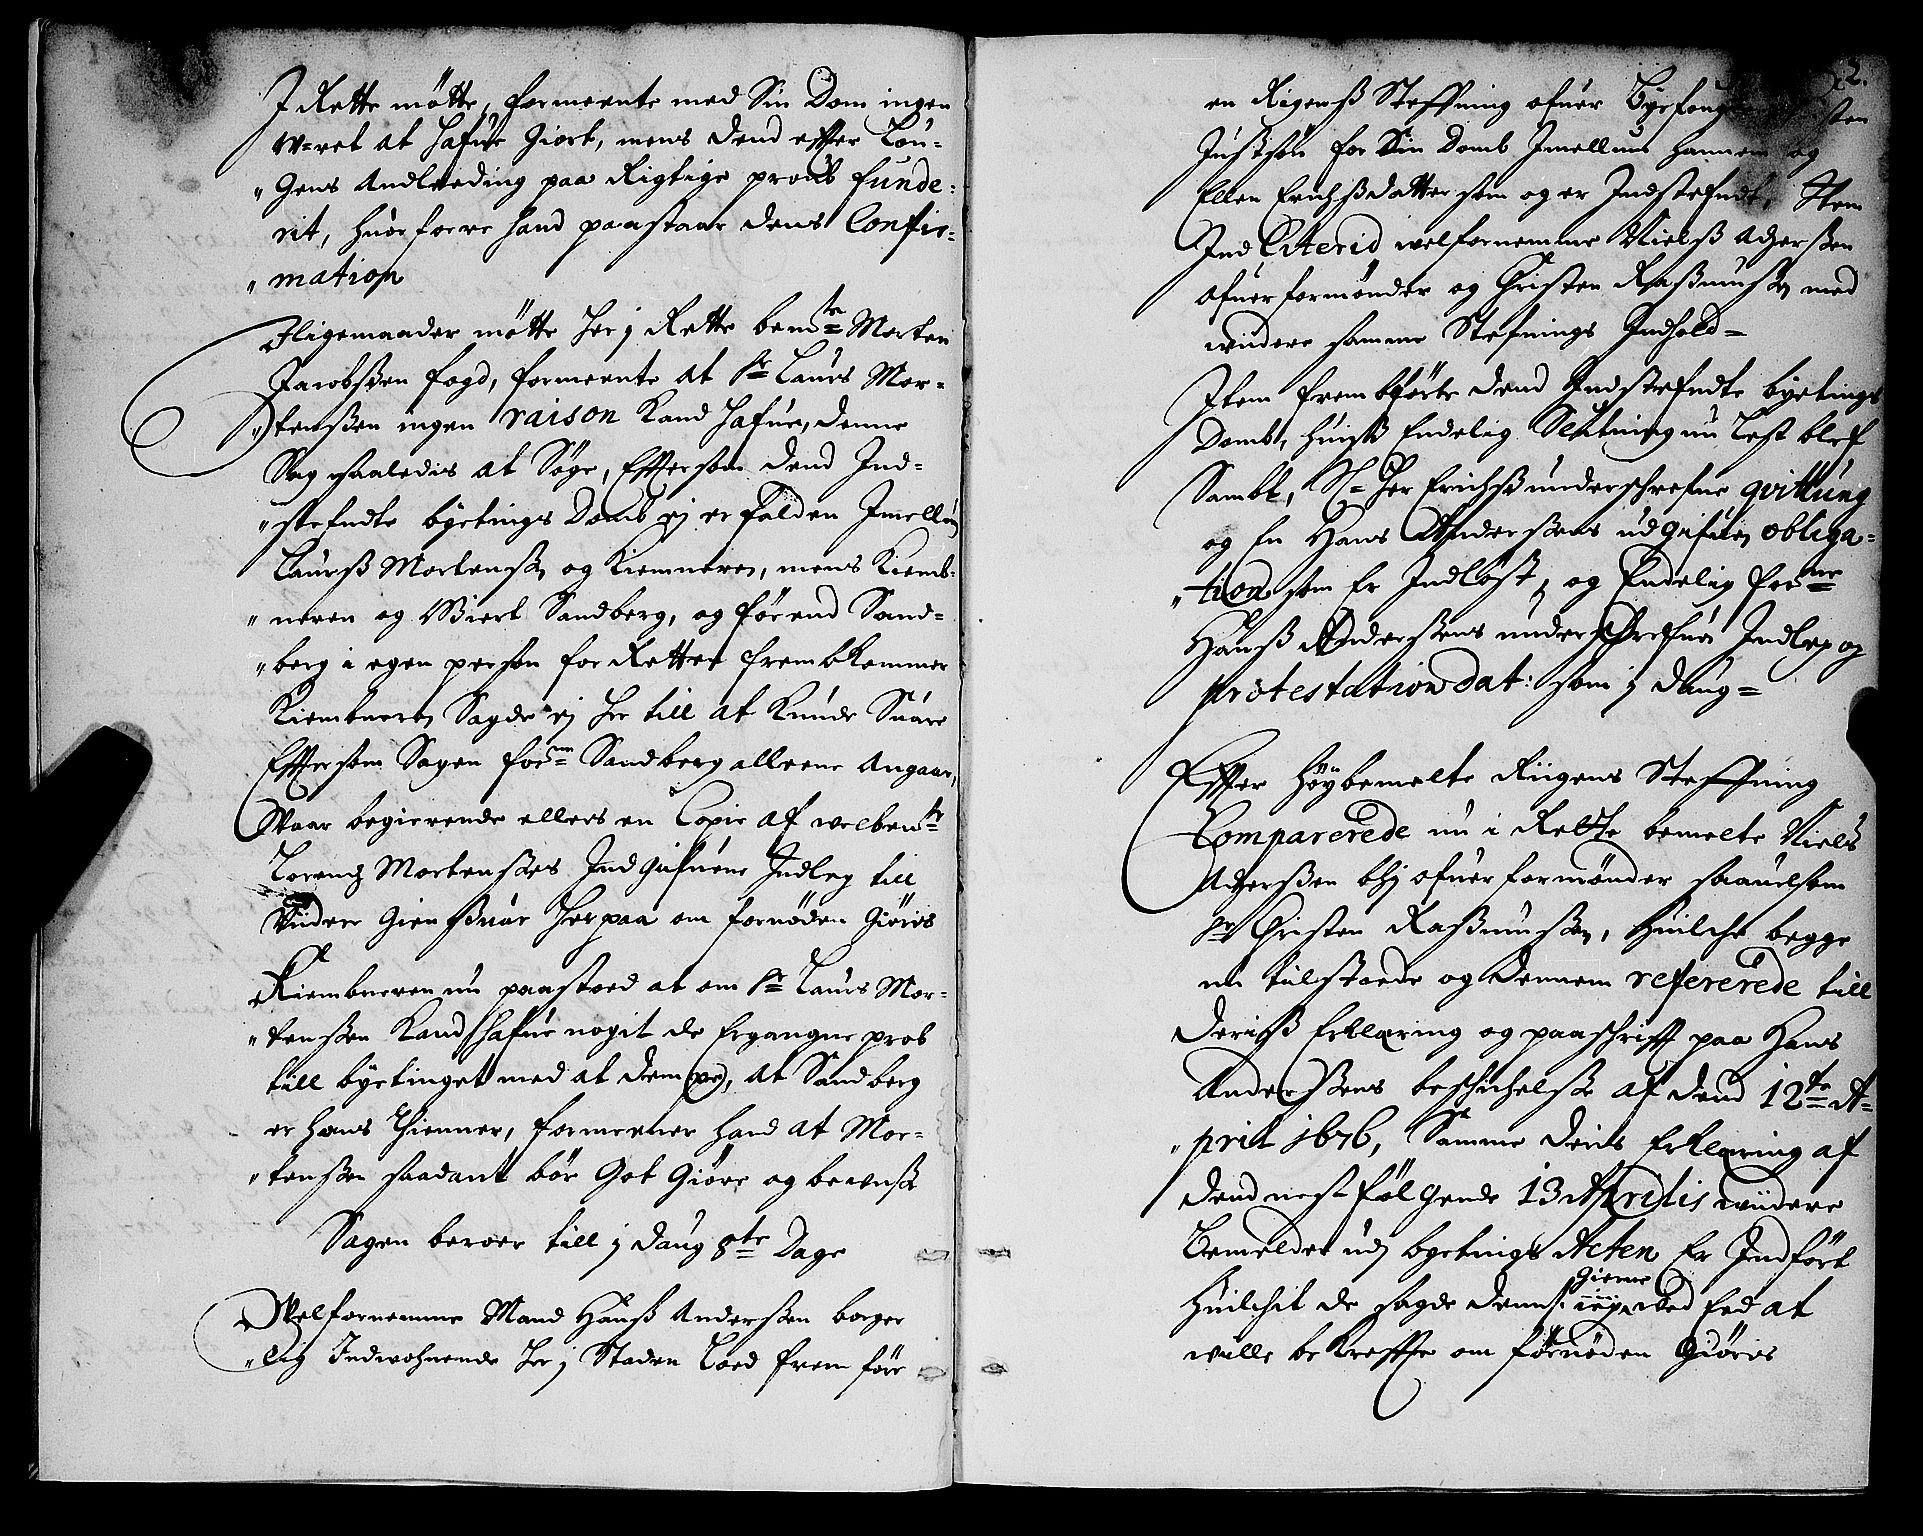 I Rette møtte, formeente med Sin Dom ingen
w-ret at hafue Giort, mens dend effter Lou-
"Gens Andleeding paa Rigtige proub funde-
rit, huorforre hand paastaar dens Confir-
"mation
Iligemaader møtte her j Rette bemte Morten
Jacobsen fogd, formeente at Sr Laurs Mor-
"tenssen ingen raison Kand hafue, denne
Sag saaledis at Søge, Effter som dend Ind-
"stefndte byetings Domb ej er falden Imellum
Laurss Mortenssen og Kiemneren, mens Kiemb-
"neren og Wiert Sandberg, og førend Sand-
"berg i egen person for Retten frembkommer
Kiembneren Sagde ej her till at Kunde Suare
Effter som Sagen forne Sandberg alleene Angaar,
Waar begierende ellers en Copie af welbemte
Lorentz Mortensens Indgifuene Indleg till
Videre Giensuar herpaa om fornøden Giøris
Kiembneren nu paastoed at om Sr Laurs Mor-
"tenssen Kand hafue nogit de Ergangne prob
till byetinget med at dem, at Sandberg
er hans thienner, formeener hand at Mor-
"tenssen saadant bør Got Giøre og beviisse
Sagen beroer till j daug 8te Dage
Welfornemme Mand Hanss Anderssen borger
"lig Indwohnende her j Staden Loed frem føre
2.
en Rigenss Steffning ofuer Byefong
Justsøn for Sin Domb Imellum hannem og
Ellen Erichssdatter som og er Indstefndt, Item
Ind Citerid welfornemme Nielss Adzerssen
ofuerformønder og Christen Rassmussen med
widere samme Stefnings Indhold-
Item frembførte dend Indstefndte byetings
Domb, huiss Endelig Slutning nu Lest blef
Sambt, Sl- Per Erichss underschrefne qvittung
og En Hans Anderssens udgifuen obliga-
"tion som Er Indløst, og Endelig forne
Hanss Anderssens underschrefne Indleg og
protestation dat: som j daug-
Effter Høybemelte Riigens Steffning
Comparerede nu i Rette bemelte Niels
Adzerssen bye ofuerformønder saauelsom
Sr Christen Rassmussen, huilche begge
nu tilstoede og dennem refererede till
deriss Erklæring og paaschrifft paa Hans
Anderssens beschichelsse af dend 12te A-
"pril 1676, Samme deris Erklæring af
dend nest følgende 13 Aprilis widere
bemelder udj byetings Acten Er Indført
Huilchit de sagde dennem gierne wed Eed at
wille beKreffte om fornøden Giøris